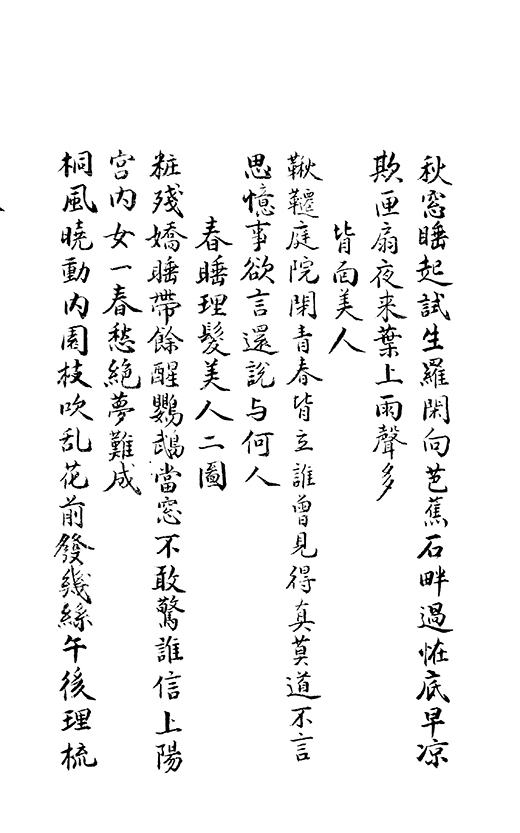 秋窓睡起試生羅閑向芭蕉石畔過恠底早凉
欺匣扇夜来葉上雨聲多
背面美人
鞦韆庭院閑青春背立誰曾見得真莫道不言
思憶事欲言還説与何人
春睡理髮美人二圖
粧殘嬌睡帶餘酲鸚鵡當窓不敢驚誰信上陽
宫内女一春愁絶夢難成
桐風曉動内園枝吹乱花前發幾絲午後理梳